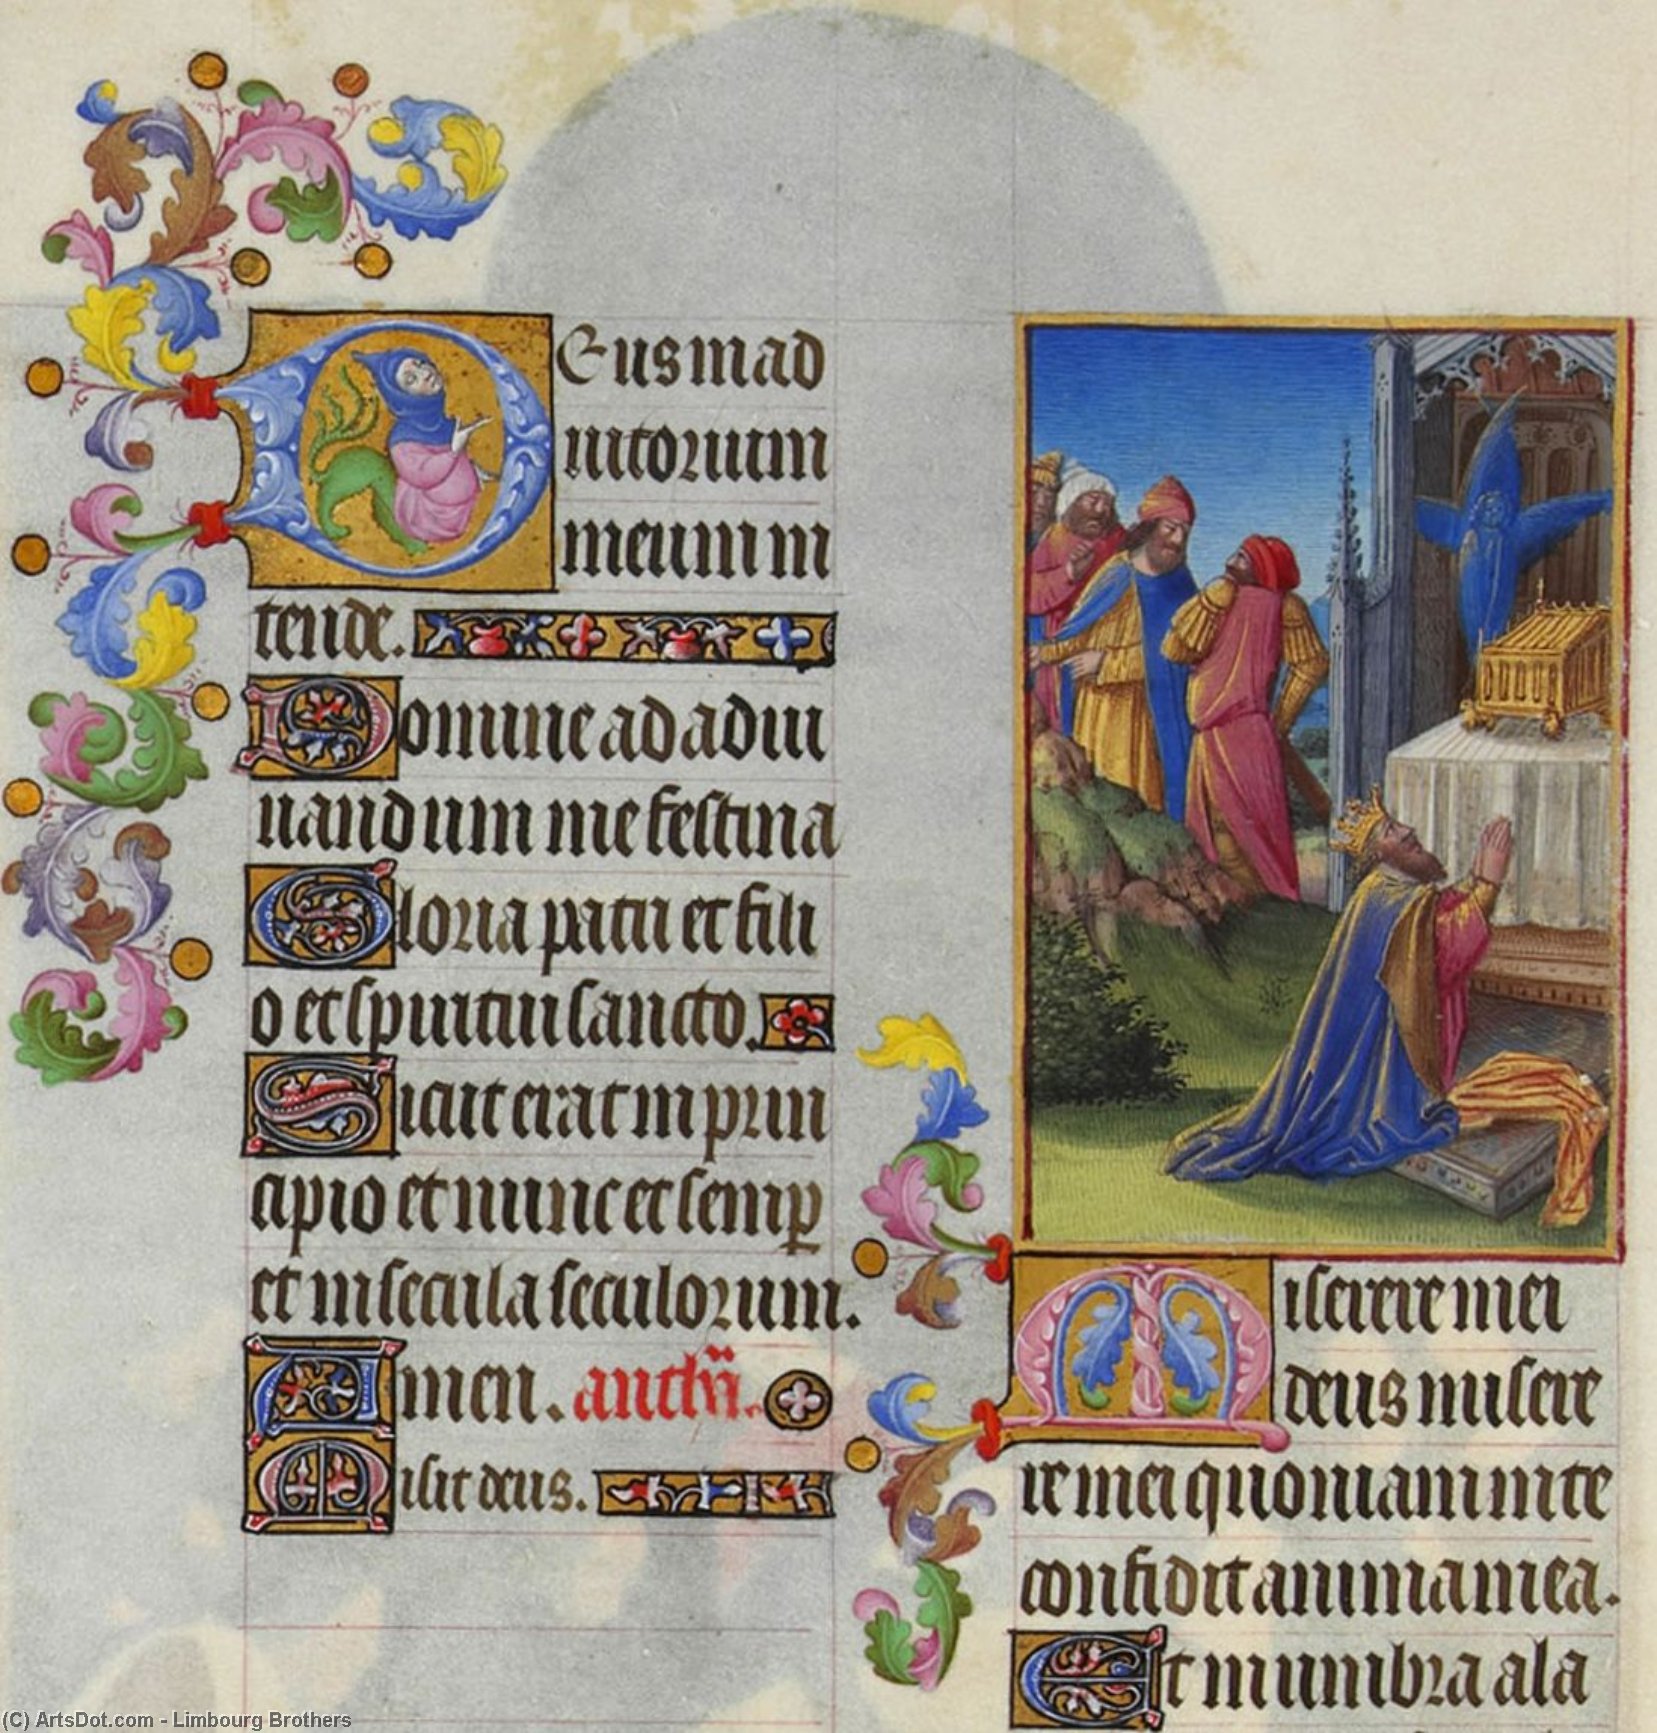 Deus in ad
iutorium
meum in
tende.
Domine ad adiu
uandum me festina
Gloria patri et fili
o et spiritui sancto.
Sicut erat in prin
cipio et nunc et semp
et in secula seculorum.
Amen. anth̄a.
Misit deus.
Miserere mei
deus misere
re mei quoniam in te
confidit anima mea.
Et in umbra ala
(C) ArtsDot.com - Limbourg Brothers